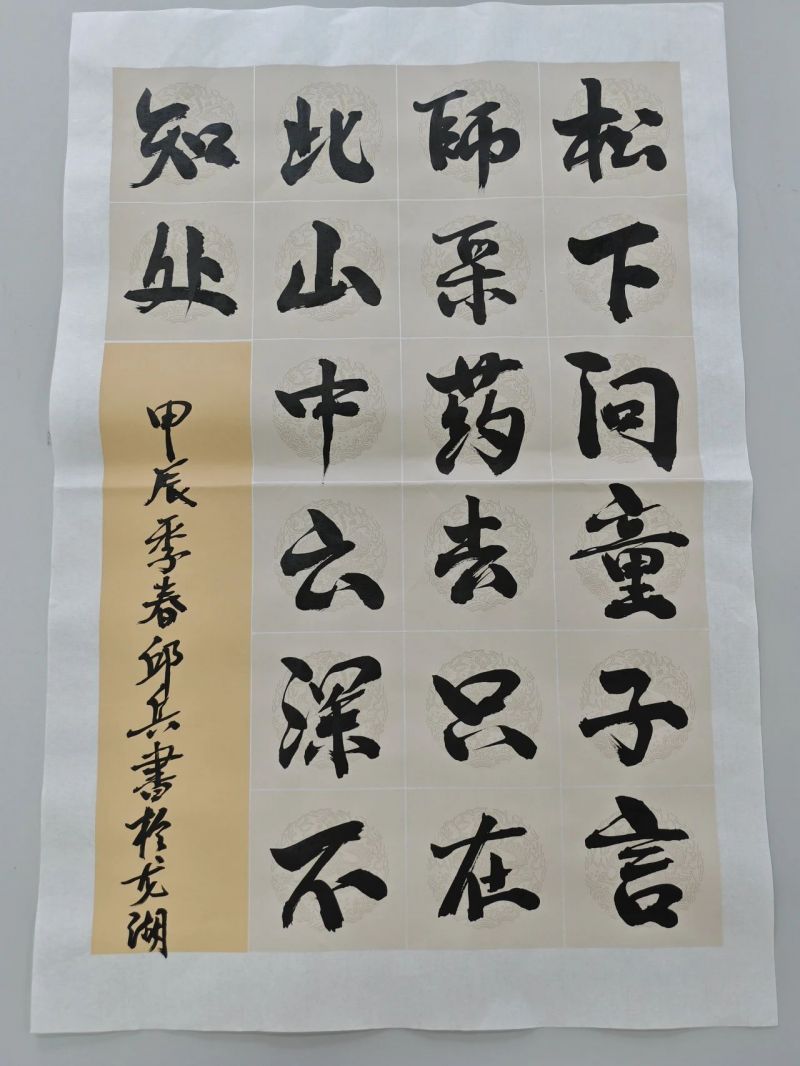 松下问童子言
师采药去只在
此山中云深不
知处
甲辰季春邱兵書於龙湖